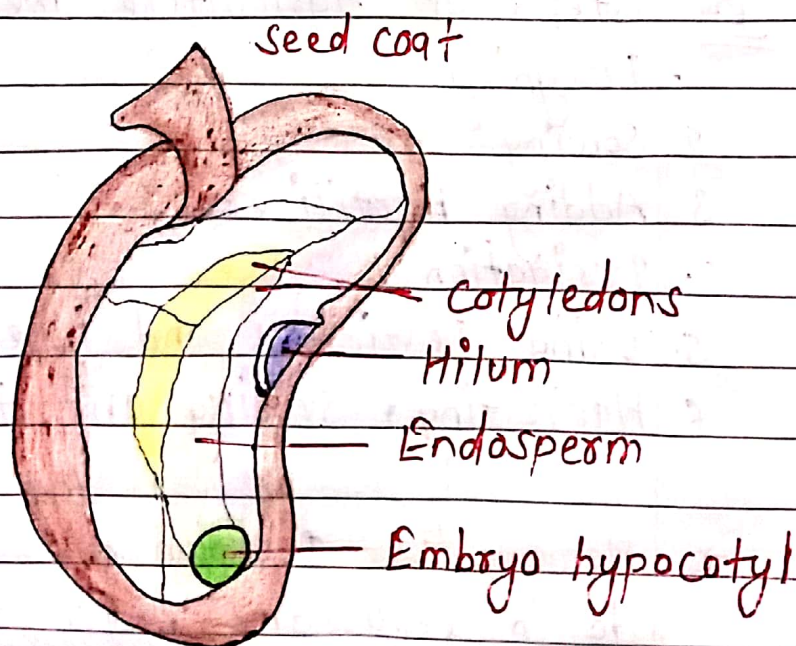 seed coat
Cotyledons
Hilum
Endosperm
Embryo hypocotyl